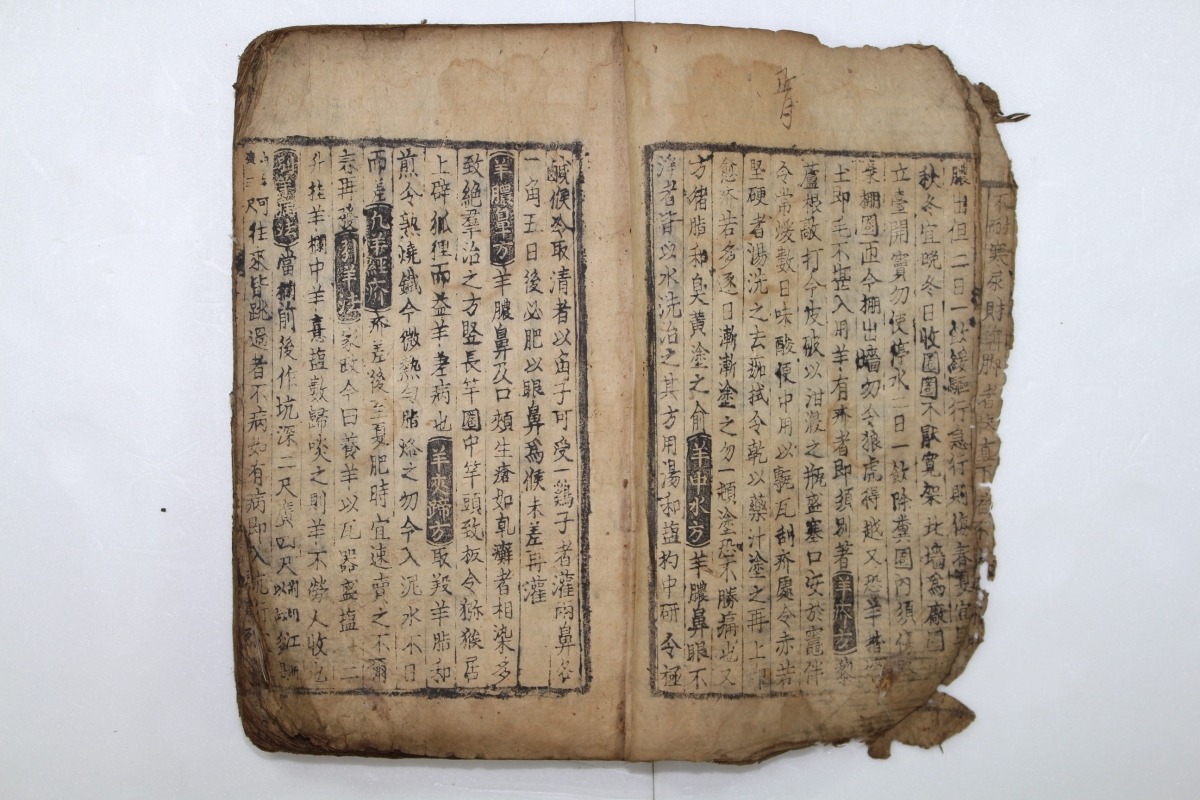 不耐寒
膿出但二日一飲緩驅行急行則傷春夏宜早
秋冬宜晚冬日收圈圈不厭寬架北墻爲廠圈
立臺開竇勿使停水二日一飲除糞圈內須
棚圈匝令棚出墻勿令狼虎得越又恐羊揩墻
土即毛不堪入用羊有疥者即須別著羊疥方藜
蘆根敲打令皮破以泔浸之瓶盛塞口安於竈伴
令常煖數日味酸便中用以甎瓦刮疥處令赤若
堅硬者湯洗之去痂拭令乾以藥汁塗之再上
愈疥若多逐日漸漸塗之勿一頓塗恐不勝痛也又
方猪脂和臭黃塗之俞羊中水方羊膿鼻眼不
淨者皆以水洗治之其方用湯和塩杓中研令極
鹹候冷取清者以角子可受一鷄子者灌兩鼻各
一角五日後必肥以眼鼻爲候未差再灌
羊膿鼻方羊膿鼻及口頰生瘡如乾癬者相染多
致絶羣治之方竪長竿圈中竿頭致板令猕猴居
上辟狐狸而益羊差病也羊夾蹄方取羖羊脂和
煎令熟燒鐵令微熱勻脂烙之勿令入泥水不日
而差凡羊經疥疥差後至夏肥時宜速賣之不爾
再發羊法家政令曰養羊以瓦器盛塩一二
升挂羊欄中羊喜塩數歸啖之則羊不勞人收也
別羊病法當欄前後作坑深二尺廣四尺
往來皆跳過者不病如有病即入坑行